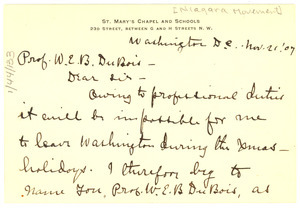 [Niagara Movement]
ST. MARY'S CHAPEL AND SCHOOLS
23D STREET, BETWEEN G AND H STREETS N. W.
Washington D.C. Nov. 21, '07
Prof. W.E.B. DuBois -
Dear sir -
Owing to professional duties
it will be impossible for me
to leave Washington during the Xmas-
holidays. I therefore beg to
name you, Prof. W.E.B DuBois, as